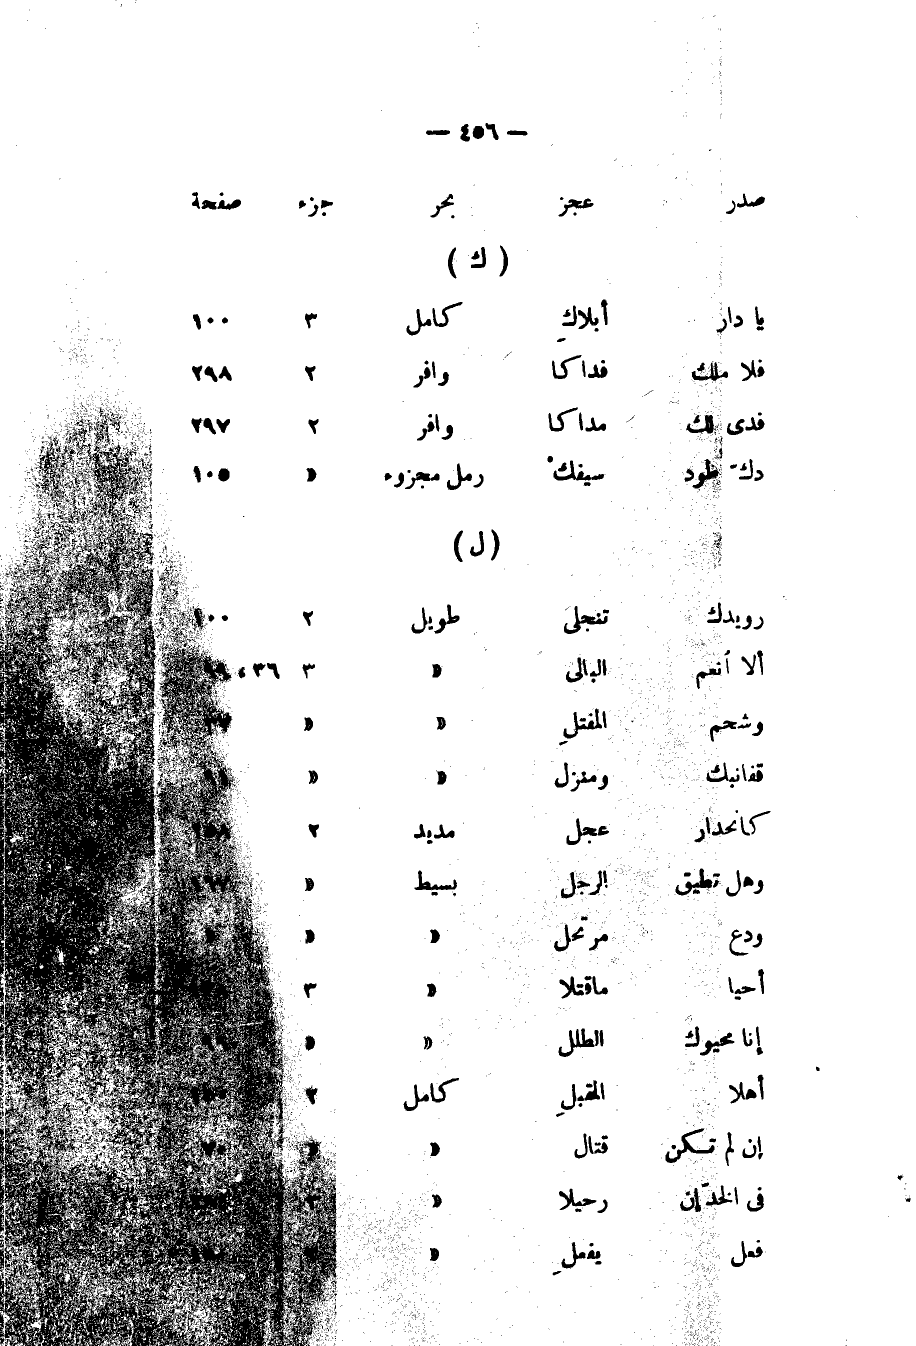 — ٤٥٦ —
صدر عجز بحر جزء صفحة
( ك )
يا دار أبلاكِ كامل ٣ ١٠٠
فلا ملك فداكا وافر ٢ ٢٩٨
فدى لك مداكا وافر ٢ ٢٩٧
دكّ طود سيفكْ رمل مجزوء » ١٠٥
( ل )
رويدك تنجلى طويل ٢ ١٠٠
ألا أنعم البالى » ٣ ٣٦ ، ٩٩
وشحم المفتلِ » » ٣٧
قفانبك ومنزل » »
كانحدار عجل مديد ٢ ١٥٨
وهل تطيق الرجل بسيط »
ودع مرتحل » »
أحيا ماقتلا » ٣
إنا محيوك الطلل » » ٩٩
أهلا المقبلِ كامل ٢
إن لم تكن قتال » » ٧٠
فى الخدّ إن رحيلا » ٣
فعل يفعلِ »